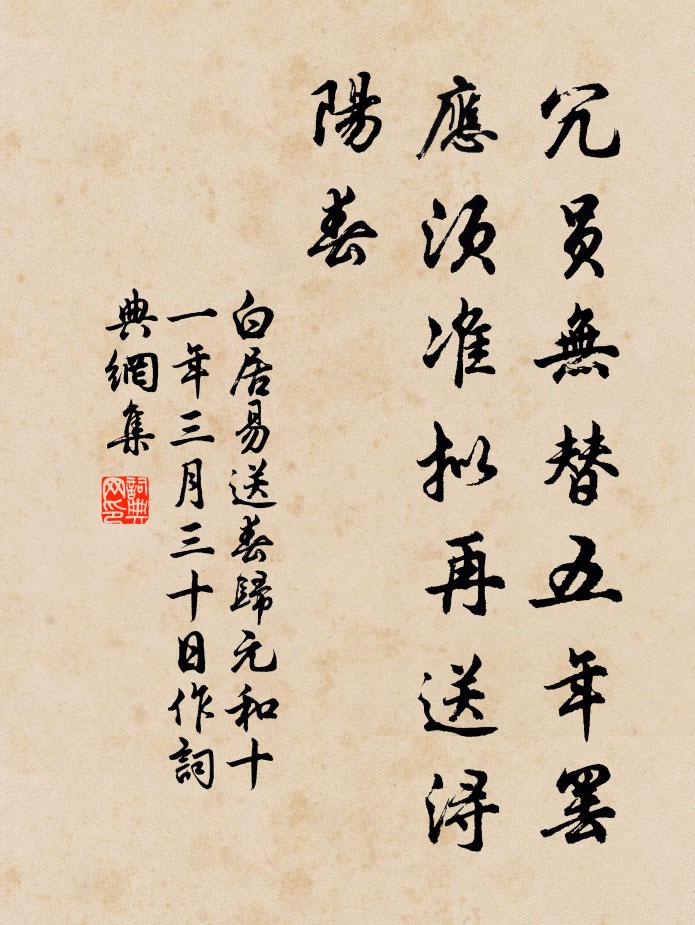 冗員無替五年罷
應須准擬再送潯
陽春
白居易送春歸元和十
一年三月三十日作詞
典網集
詞典
网印